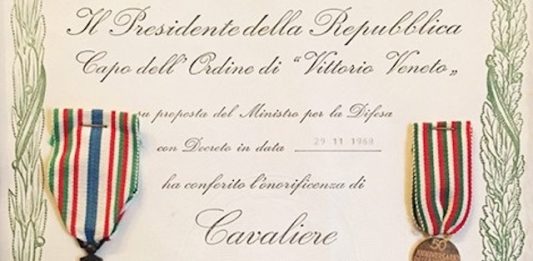 Il Presidente della Repubblica
Capo dell'Ordine di "Vittorio Veneto„
su proposta del Ministro per la Difesa
con Decreto in data 29 11 1969
ha conferito l'onorificenza di
Cavaliere
50
ANNIVERSARIO